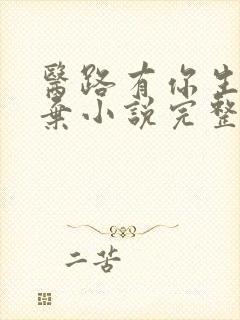 醫路有你生
棄小説完整
二苦